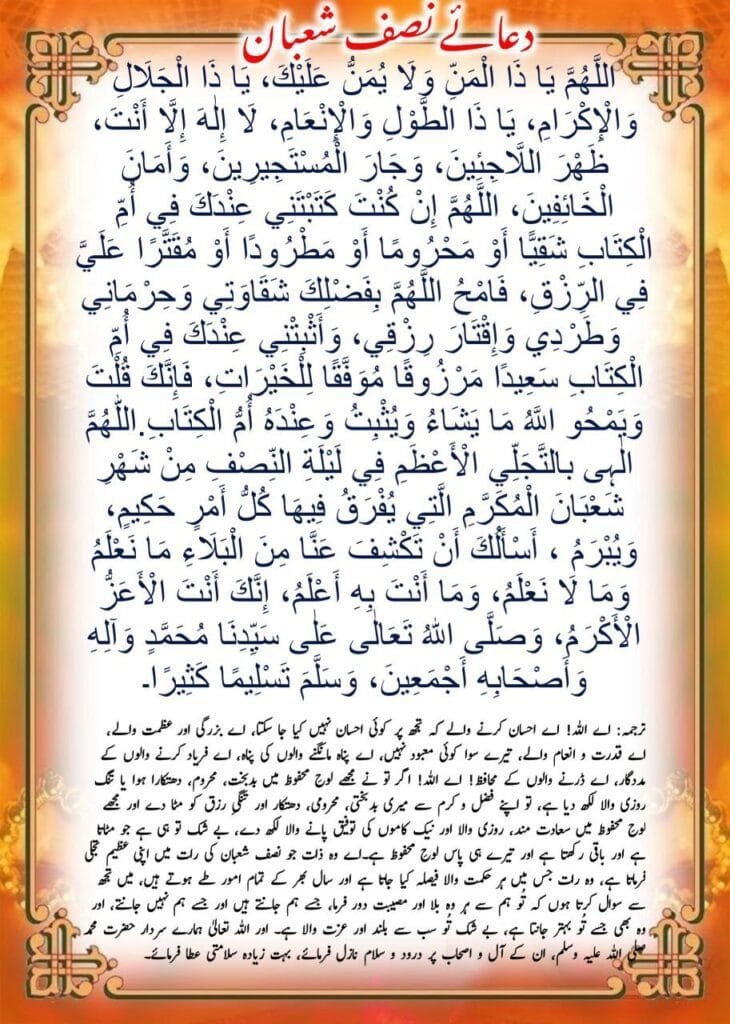 دعائے نصف شعبان
اللَّهُمَّ يَا ذَا الْمَنِّ وَلَا يُمَنُّ عَلَيْكَ، يَا ذَا الْجَلَالِ
وَالْإِكْرَامِ، يَا ذَا الطَّوْلِ وَالْإِنْعَامِ، لَا إِلٰهَ إِلَّا أَنْتَ،
ظَهْرَ اللَّاجِئِينَ، وَجَارَ الْمُسْتَجِيرِينَ، وَأَمَانَ
الْخَائِفِينَ، اللَّهُمَّ إِنْ كُنْتَ كَتَبْتَنِي عِنْدَكَ فِي أُمِّ
الْكِتَابِ شَقِيًّا أَوْ مَحْرُومًا أَوْ مَطْرُودًا أَوْ مُقَتَّرًا عَلَيَّ
فِي الرِّزْقِ، فَامْحُ اللَّهُمَّ بِفَضْلِكَ شَقَاوَتِي وَحِرْمَانِي
وَطَرْدِي وَإِقْتَارَ رِزْقِي، وَأَثْبِتْنِي عِنْدَكَ فِي أُمِّ
الْكِتَابِ سَعِيدًا مَرْزُوقًا مُوَفَّقًا لِلْخَيْرَاتِ، فَإِنَّكَ قُلْتَ
وَيَمْحُو اللَّهُ مَا يَشَاءُ وَيُثْبِتُ وَعِنْدَهُ أُمُّ الْكِتَابِ.اللَّهُمَّ
الٰہی بالتَّجَلِّي الْأَعْظَمِ فِي لَيْلَةِ النِّصْفِ مِنْ شَهْرِ
شَعْبَانَ الْمُكَرَّمِ الَّتِي يُفْرَقُ فِيهَا كُلُّ أَمْرٍ حَكِيمٍ،
وَيُبْرَمُ ، أَسْأَلُكَ أَنْ تَكْشِفَ عَنَّا مِنَ الْبَلَاءِ مَا نَعْلَمُ
وَمَا لَا نَعْلَمُ، وَمَا أَنْتَ بِهِ أَعْلَمُ، إِنَّكَ أَنْتَ الْأَعَزُّ
الْأَكْرَمُ، وَصَلَّى اللهُ تَعَالٰى عَلٰى سَيِّدِنَا مُحَمَّدٍ وَآلِهِ
وَأَصْحَابِهِ أَجْمَعِينَ، وَسَلَّمَ تَسْلِيمًا كَثِيرًا۔
ترجمہ: اے اللہ! اے احسان کرنے والے کہ تجھ پر کوئی احسان نہیں کیا جا سکتا، اے بزرگی اور عظمت والے،
اے قدرت و انعام والے، تیرے سوا کوئی معبود نہیں، اے پناہ مانگنے والوں کی پناہ، اے فریاد کرنے والوں کے
مددگار، اے ڈرنے والوں کے محافظ! اے اللہ! اگر تو نے مجھے لوح محفوظ میں بدبخت، محروم، دھتکارا ہوا یا تنگ
روزی والا لکھ دیا ہے، تو اپنے فضل و کرم سے میری بدبختی، محرومی، دھتکار اور تنگیِ رزق کو مٹا دے اور مجھے
لوح محفوظ میں سعادت مند، روزی والا اور نیک کاموں کی توفیق پانے والا لکھ دے، بے شک تو ہی ہے جو مٹاتا
ہے اور باقی رکھتا ہے اور تیرے ہی پاس لوح محفوظ ہے۔اے وہ ذات جو نصف شعبان کی رات میں اپنی عظیم تجلی
فرماتا ہے، وہ رات جس میں ہر حکمت والا فیصلہ کیا جاتا ہے اور سال بھر کے تمام امور طے ہوتے ہیں، میں تجھ
سے سوال کرتا ہوں کہ تُو ہم سے ہر وہ بلا اور مصیبت دور فرما، جسے ہم جانتے ہیں اور جسے ہم نہیں جانتے، اور
وہ بھی جسے تُو بہتر جانتا ہے، بے شک تُو سب سے بلند اور عزت والا ہے۔ اور اللہ تعالیٰ ہمارے سردار حضرت محمد
صلی اللہ علیہ وسلم، ان کے آل و اصحاب پر درود و سلام نازل فرمائے، بہت زیادہ سلامتی عطا فرمائے۔